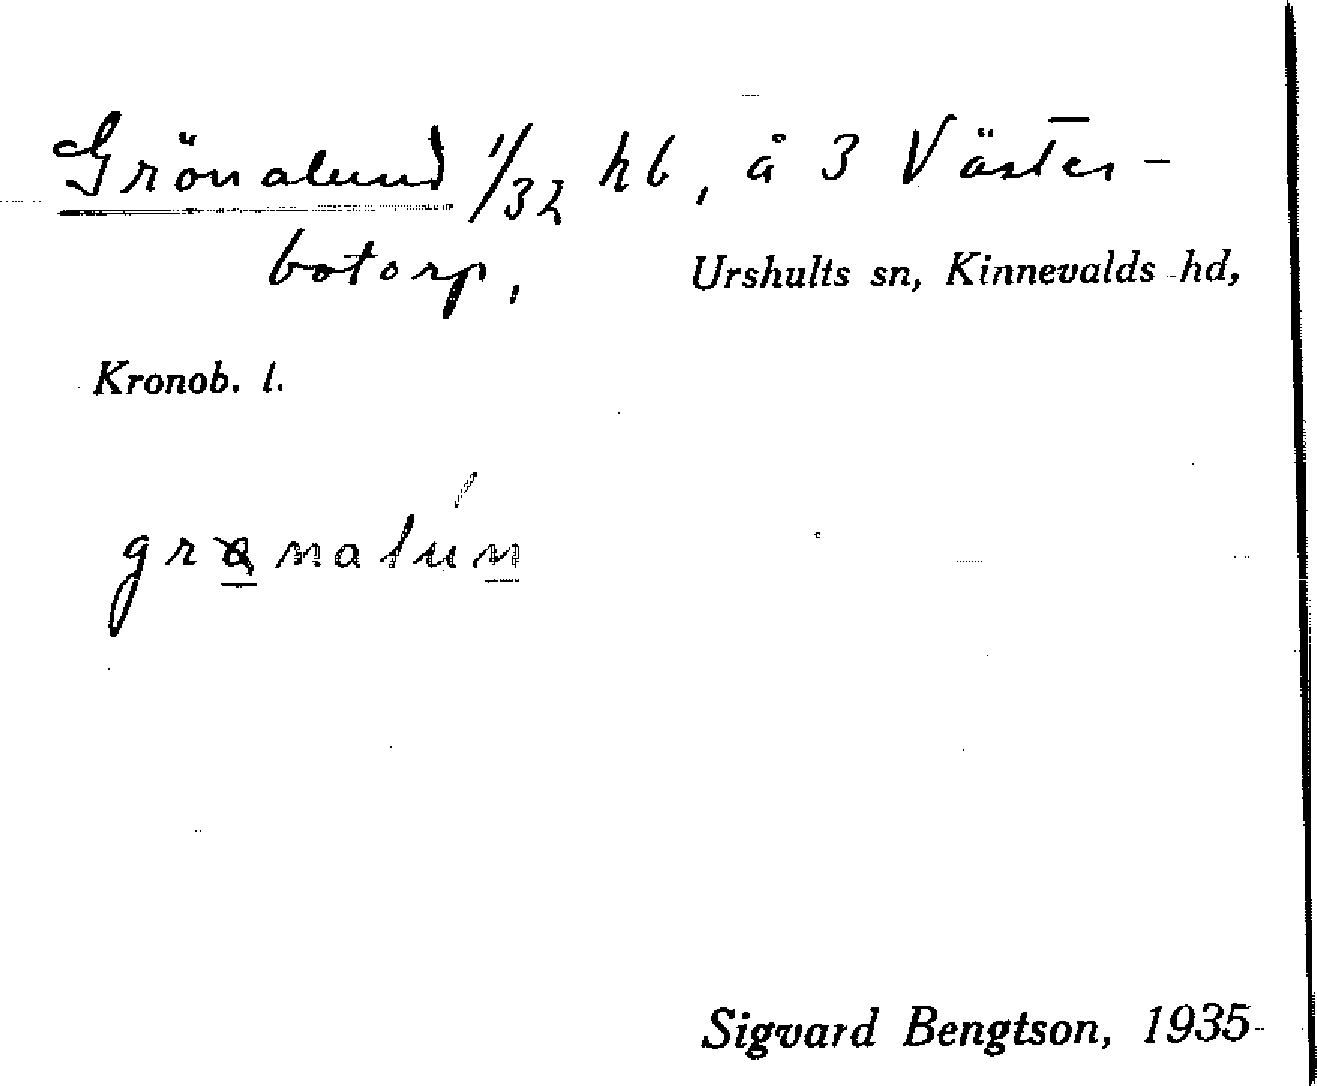 Grönalund 1/32 hb, å 3 Väster-
botorp, Urshults sn, Kinnevalds hd,
Kronob. l.
grønalún
Sigvard Bengtson, 1935